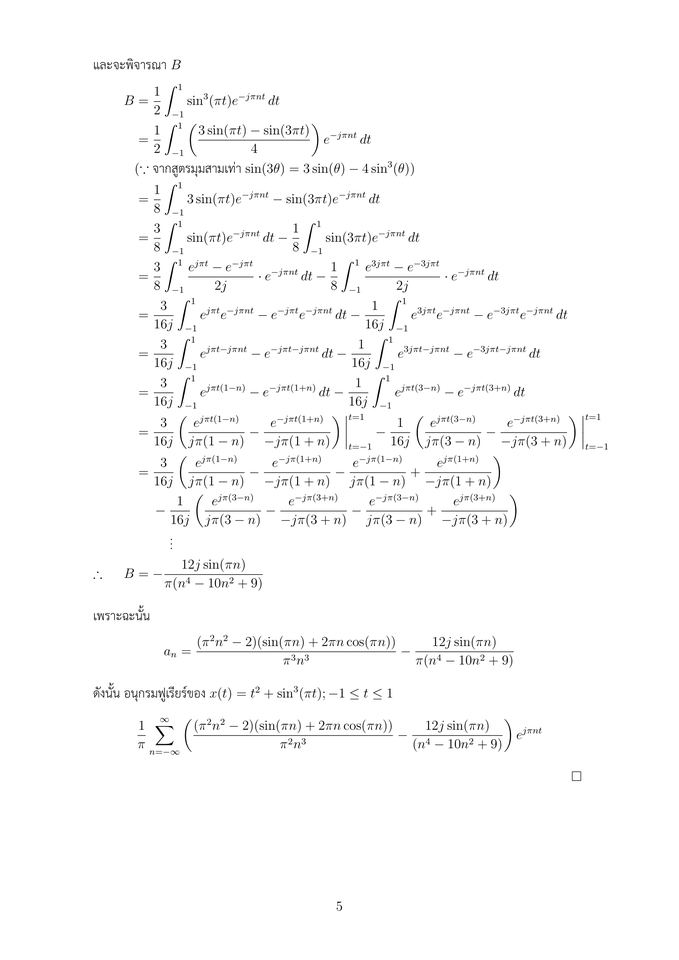 และจะพิจารณา B
B = \frac{1}{2} \int_{-1}^{1} \sin^3(\pi t) e^{-j\pi nt} \, dt
= \frac{1}{2} \int_{-1}^{1} \left( \frac{3\sin(\pi t) - \sin(3\pi t)}{4} \right) e^{-j\pi nt} \, dt
(∵ จากสูตรมุมสามเท่า \sin(3\theta) = 3\sin(\theta) - 4\sin^3(\theta))
= \frac{1}{8} \int_{-1}^{1} 3\sin(\pi t) e^{-j\pi nt} - \sin(3\pi t) e^{-j\pi nt} \, dt
= \frac{3}{8} \int_{-1}^{1} \sin(\pi t) e^{-j\pi nt} \, dt - \frac{1}{8} \int_{-1}^{1} \sin(3\pi t) e^{-j\pi nt} \, dt
= \frac{3}{8} \int_{-1}^{1} \frac{e^{j\pi t} - e^{-j\pi t}}{2j} \cdot e^{-j\pi nt} \, dt - \frac{1}{8} \int_{-1}^{1} \frac{e^{3j\pi t} - e^{-3j\pi t}}{2j} \cdot e^{-j\pi nt} \, dt
= \frac{3}{16j} \int_{-1}^{1} e^{j\pi t} e^{-j\pi nt} - e^{-j\pi t} e^{-j\pi nt} \, dt - \frac{1}{16j} \int_{-1}^{1} e^{3j\pi t} e^{-j\pi nt} - e^{-3j\pi t} e^{-j\pi nt} \, dt
= \frac{3}{16j} \int_{-1}^{1} e^{j\pi t - j\pi nt} - e^{-j\pi t - j\pi nt} \, dt - \frac{1}{16j} \int_{-1}^{1} e^{3j\pi t - j\pi nt} - e^{-3j\pi t - j\pi nt} \, dt
= \frac{3}{16j} \int_{-1}^{1} e^{j\pi t(1-n)} - e^{-j\pi t(1+n)} \, dt - \frac{1}{16j} \int_{-1}^{1} e^{j\pi t(3-n)} - e^{-j\pi t(3+n)} \, dt
= \frac{3}{16j} \left( \frac{e^{j\pi t(1-n)}}{j\pi(1-n)} - \frac{e^{-j\pi t(1+n)}}{-j\pi(1+n)} \right) \Big|_{t=-1}^{t=1} - \frac{1}{16j} \left( \frac{e^{j\pi t(3-n)}}{j\pi(3-n)} - \frac{e^{-j\pi t(3+n)}}{-j\pi(3+n)} \right) \Big|_{t=-1}^{t=1}
= \frac{3}{16j} \left( \frac{e^{j\pi(1-n)}}{j\pi(1-n)} - \frac{e^{-j\pi(1+n)}}{-j\pi(1+n)} - \frac{e^{-j\pi(1-n)}}{j\pi(1-n)} + \frac{e^{j\pi(1+n)}}{-j\pi(1+n)} \right)
- \frac{1}{16j} \left( \frac{e^{j\pi(3-n)}}{j\pi(3-n)} - \frac{e^{-j\pi(3+n)}}{-j\pi(3+n)} - \frac{e^{-j\pi(3-n)}}{j\pi(3-n)} + \frac{e^{j\pi(3+n)}}{-j\pi(3+n)} \right)
⋮
∴ B = -\frac{12j \sin(\pi n)}{\pi(n^4 - 10n^2 + 9)}
เพราะฉะนั้น
a_n = \frac{(\pi^2 n^2 - 2)(\sin(\pi n) + 2\pi n \cos(\pi n))}{\pi^3 n^3} - \frac{12j \sin(\pi n)}{\pi(n^4 - 10n^2 + 9)}
ดังนั้น อนุกรมฟูเรียร์ของ x(t) = t^2 + \sin^3(\pi t); -1 \leq t \leq 1
\frac{1}{\pi} \sum_{n=-\infty}^{\infty} \left( \frac{(\pi^2 n^2 - 2)(\sin(\pi n) + 2\pi n \cos(\pi n))}{\pi^2 n^3} - \frac{12j \sin(\pi n)}{(n^4 - 10n^2 + 9)} \right) e^{j\pi nt}
□
5